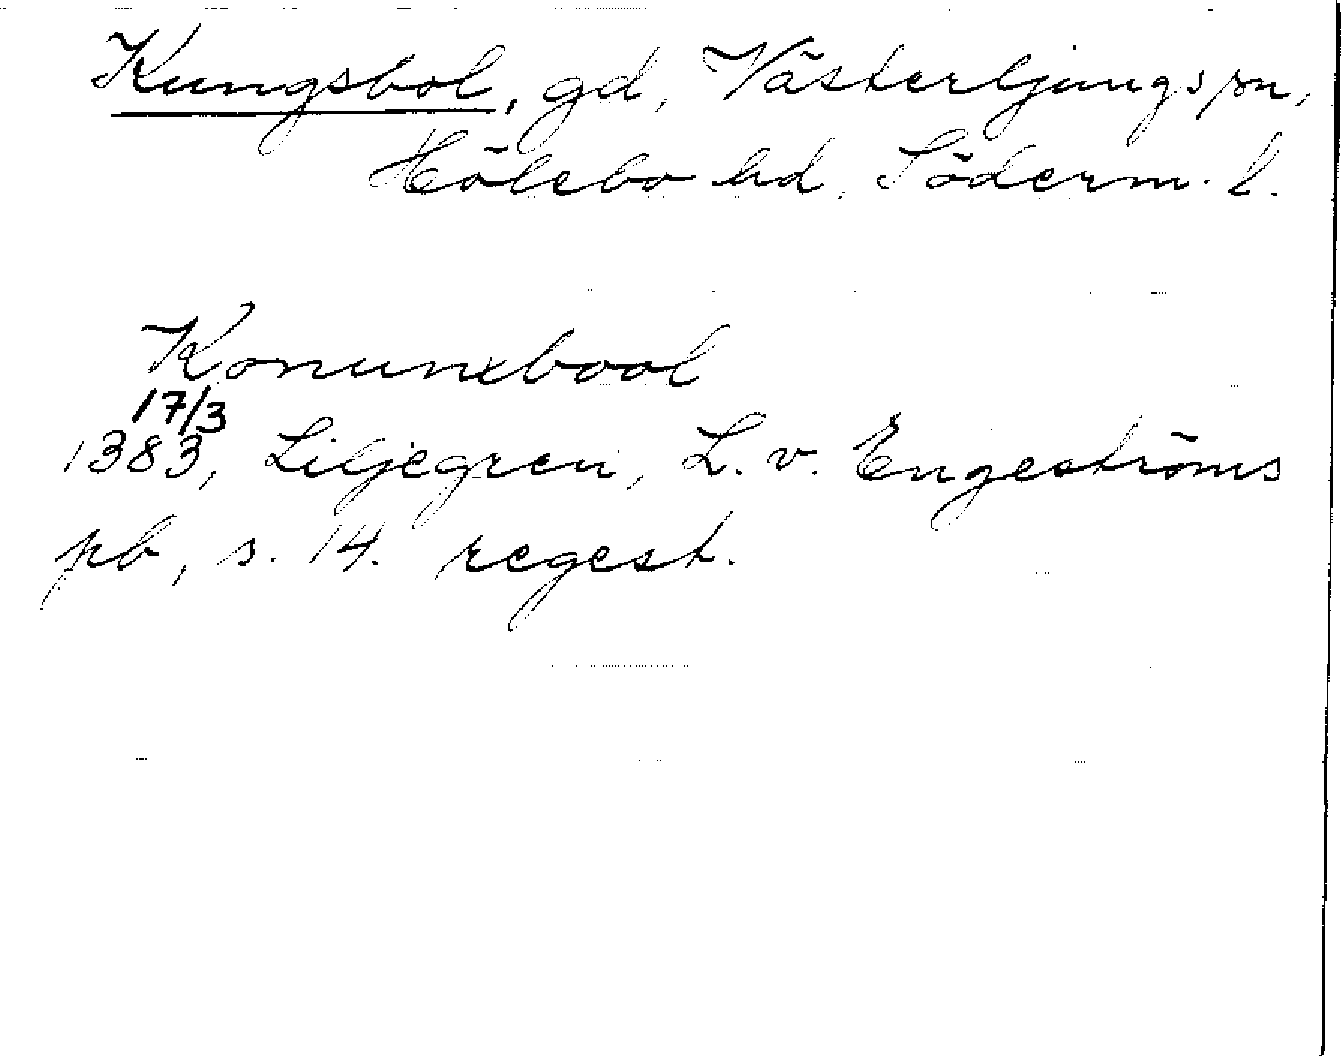 Kungsbol, gd, Västerljungs sn,
Hölebo hd, Söderm. l.
Konunxbool
17/3
1383, Liljegren, L. v. Engeströms
pb, s. 14. regest.